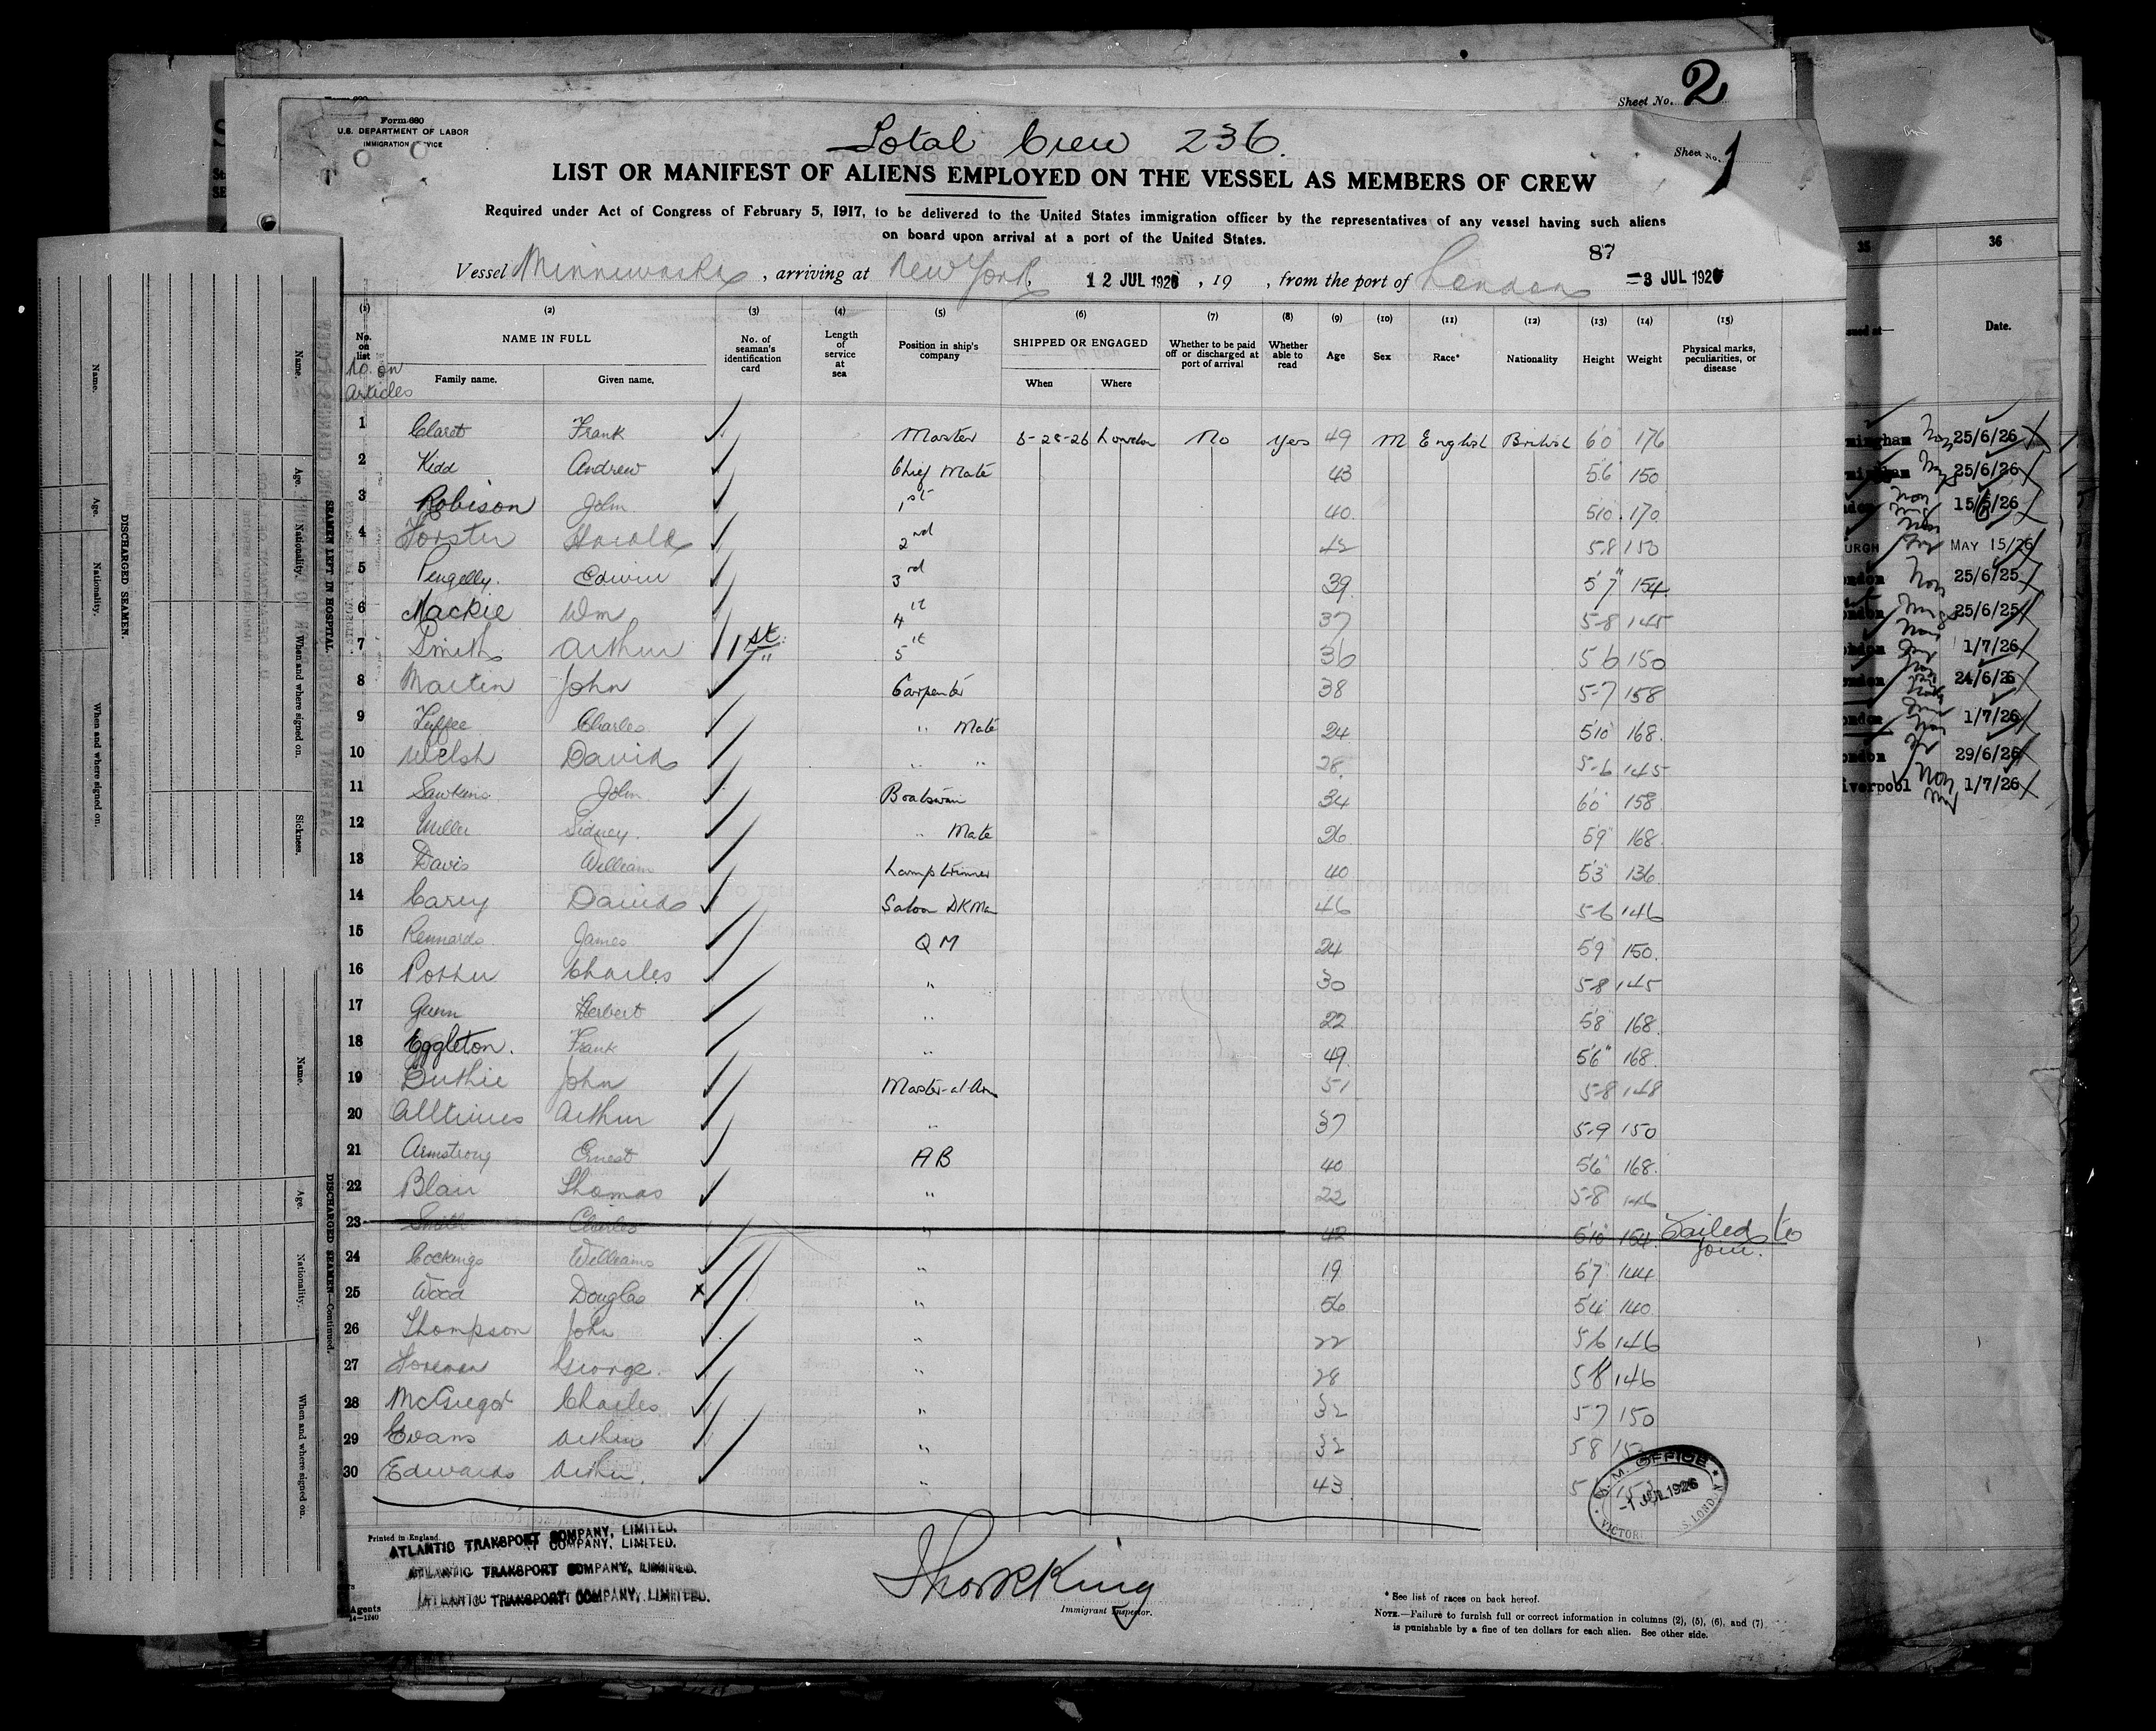 Sheet No. 2
Form 680
U.S. DEPARTMENT OF LABOR
IMMIGRATION SERVICE
Total Crew 236.
Sheet No. 1
LIST OR MANIFEST OF ALIENS EMPLOYED ON THE VESSEL AS MEMBERS OF CREW
Required under Act of Congress of February 5, 1917, to be delivered to the United States immigration officer by the representatives of any vessel having such aliens
on board upon arrival at a port of the United States.
87
Vessel Minnewaska, arriving at New York, 12 JUL 1926, 19 , from the port of London -3 JUL 1926
(1) (2) (3) (4) (5) (6) (7) (8) (9) (10) (11) (12) (13) (14) (15)
No. on list NAME IN FULL No. of seaman's identification card Length of service at sea Position in ship's company SHIPPED OR ENGAGED Whether to be paid off or discharged at port of arrival Whether able to read Age Sex Race* Nationality Height Weight Physical marks, peculiarities, or disease
No. on Articles Family name. Given name. When Where
1 Claret Frank Master 6-28-26 London No Yes 49 M English British 6'0 176
2 Kidd Andrew Chief Mate 43 5'6 150
3 Robison John 1st 40. 5'10. 170
4 Forster Harold 2nd 42 5-8 150
5 Pengelly. Edwin 3rd 39. 5'7" 154.
6 Mackie Wm 4th 37 5-8 145
7 Smith Arthur 1st " 5th 36 5 6 150
8 Martin John Carpenter 38 5-7 158
9 Tuffee Charles " Mate 24 5'10 168.
10 Welsh David " " 28. 5-6 145
11 Sawkins John Boatswain 34 6'0 158
12 Miller Sidney. " Mate 26 5'9" 168.
13 Davis William Lamptrimmer 40 5'3" 136.
14 Carey David Saloon DK Man 46 5-6 146
15 Rennards James QM 24 5'9 150.
16 Potter Charles " 30 5-8 145
17 Gunn Herbert " 22 5'8" 168.
18 Eggleton. Frank " 49. 5'6" 168.
19 Duthie John Master-at-Arm 51 5-8 148
20 Alltimes Arthur " 37 5-9 150
21 Armstrong Ernest AB 40 5'6" 168.
22 Blair Thomas " 22 5-8 146
23 Smith Charles " 42 5'10" 154. Failed to join.
24 Cockings William " 19 5'7" 144
25 Wood Douglas x " 56 5'4" 140
26 Thompson John " 22 5 6 146
27 Foreman George. " 28 5 8 146
28 McGregor Charles " 32 5 7 150
29 Evans Arthur " 32 5 8
30 Edwards Arthur. " 43
-1 JUL 1926
Printed in England.
ATLANTIC TRANSPORT COMPANY, LIMITED.
COMPANY, LIMITED.
ATLANTIC TRANSPORT COMPANY, LIMITED.
ATLANTIC TRANSPORT COMPANY, LIMITED.
Agents
14-1240
Immigrant Inspector.
* See list of races on back hereof.
NOTE.—Failure to furnish full or correct information in columns (2), (5), (6), and (7)
is punishable by a fine of ten dollars for each alien. See other side.
35 36
Date.
25/6/26
25/6/26
MAY 15/26
25/6/25
25/6/25
1/7/26
24/6/26
1/7/26
29/6/26
1/7/26
SEAMEN LEFT IN HOSPITAL
Name. Age. Nationality. When and where signed on. Sickness.
DISCHARGED SEAMEN.
Name. Age. Nationality. When and where signed on.
DISCHARGED SEAMEN—Continued.
Name. Age. Nationality. When and where signed on.